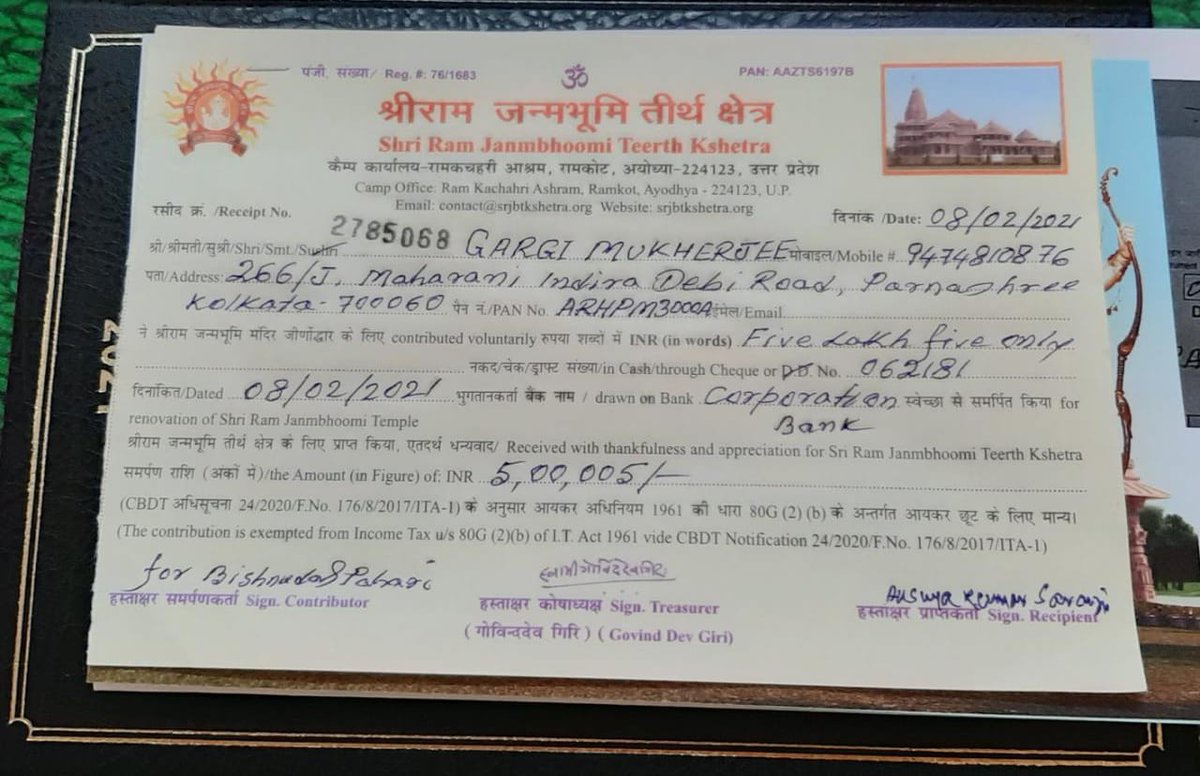 पंजी. संख्या/ Reg. #: 76/1683
ॐ
PAN: AAZTS6197B
श्रीराम जन्मभूमि तीर्थ क्षेत्र
Shri Ram Janmbhoomi Teerth Kshetra
कैम्प कार्यालय-रामकचहरी आश्रम, रामकोट, अयोध्या-224123, उत्तर प्रदेश
Camp Office: Ram Kachahri Ashram, Ramkot, Ayodhya - 224123, U.P.
Email: contact@srjbtkshetra.org Website: srjbtkshetra.org
रसीद क्र. /Receipt No. 2785068 दिनांक /Date: 08/02/2021
श्री/श्रीमती/सुश्री/Shri/Smt./Sushri GARGI MUKHERJEE मोबाइल/Mobile # 9474810876
पता/Address: 266/J, Maharani Indira Debi Road, Parnashree
Kolkata-700060 पैन नं./PAN No. ARHPM3000A ईमेल/Email
ने श्रीराम जन्मभूमि मंदिर जीर्णोद्धार के लिए contributed voluntarily रुपया शब्दों में INR (in words) Five Lakh five only
नकद/चेक/ड्राफ्ट संख्या/in Cash/through Cheque or D.D. No. 062181
दिनांकित/Dated 08/02/2021 भुगतानकर्ता बैंक नाम / drawn on Bank Corporation स्वेच्छा से समर्पित किया for
renovation of Shri Ram Janmbhoomi Temple Bank
श्रीराम जन्मभूमि तीर्थ क्षेत्र के लिए प्राप्त किया, एतदर्थ धन्यवाद/ Received with thankfulness and appreciation for Sri Ram Janmbhoomi Teerth Kshetra
समर्पण राशि (अंकों में)/the Amount (in Figure) of: INR 5,00,005/-
(CBDT अधिसूचना 24/2020/F.No. 176/8/2017/ITA-1) के अनुसार आयकर अधिनियम 1961 की धारा 80G (2) (b) के अन्तर्गत आयकर छूट के लिए मान्य।
(The contribution is exempted from Income Tax u/s 80G (2)(b) of I.T. Act 1961 vide CBDT Notification 24/2020/F.No. 176/8/2017/ITA-1)
for Bishnudas Pahari
हस्ताक्षर समर्पणकर्ता Sign. Contributor
स्वामी गोविंददेव गिरि
हस्ताक्षर कोषाध्यक्ष Sign. Treasurer
( गोविन्ददेव गिरि ) ( Govind Dev Giri)
Kumar
हस्ताक्षर प्राप्तकर्ता Sign. Recipient
2021